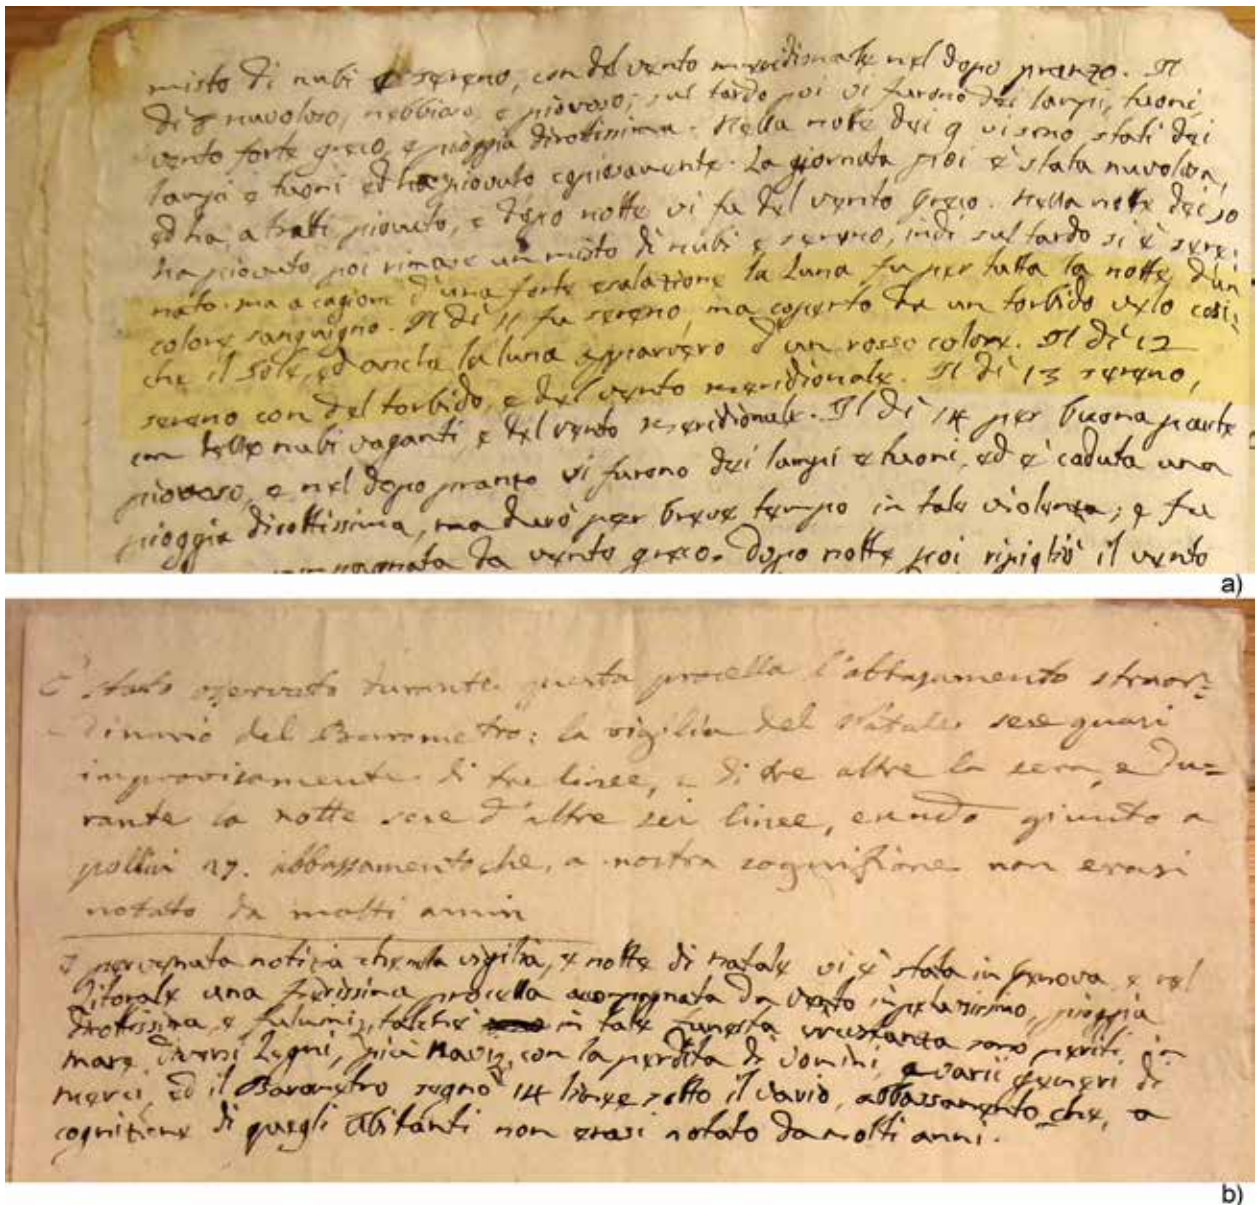 misto di nubi e sereno, con del vento meridionale nel dopo pranzo. Il
dì 8 nuvoloso, nebbioso, e piovoso; sul tardo poi vi furono dei lampi, tuoni,
vento forte greco, e pioggia dirottissima. Nella notte dei 9 vi sono stati dei
lampi e tuoni ed ha piovuto copiosamente. La giornata poi è stata nuvolosa,
ed ha, a tratti piovuto, e dopo notte vi fu del vento greco. Nella notte dei 10
ha piovuto, poi rimase un misto di nubi e sereno, indi sul tardo si è sere:
nato. ma a cagione d'una forte esalazione la Luna fu per tutta la notte d'un
colore sanguigno. Il dì 11 fu sereno, ma coperto da un torbido velo cosi:
che il sole, ed anche la luna apparvero d'un rosso colore. Il dì 12
sereno con del torbido, e del vento meridionale. Il dì 13 sereno,
con delle nubi vaganti, e del vento meridionale. Il dì 14 per buona parte
piovoso, e nel dopo pranzo vi furono dei lampi e tuoni, ed è caduta una
pioggia dirottissima, ma durò per breve tempo in tale violenza; e fu
da vento greco. dopo notte poi ripigliò il vento
a)
È stato osservato durante questa procella l'abbassamento straor=
dinario del Barometro: la vigilia del Natale sese quasi
improvisamente di tre linee, e di tre altre la sera, e du=
rante la notte sese d'altre sei linee, giunto a
pollici 27. abbassamento che, a nostra cognizione non erasi
notato da molti anni
pervenuta notizia che nla vigilia, e notte di natale vi è stata in Genova, e nel
Litorale una fierissima procella accompagnata da vento impetuosissimo, pioggia
dirottissima, e fulmini, talchè in tale funesta circostanza sono periti in
mare diversi Legni, più Navi, con la perdita di uomini, e varii generi di
merci, ed il Barometro segnò 14 linee sotto il vario, abbassamento che, a
cognizione di quegli Abitanti non erasi notato da molti anni.
b)